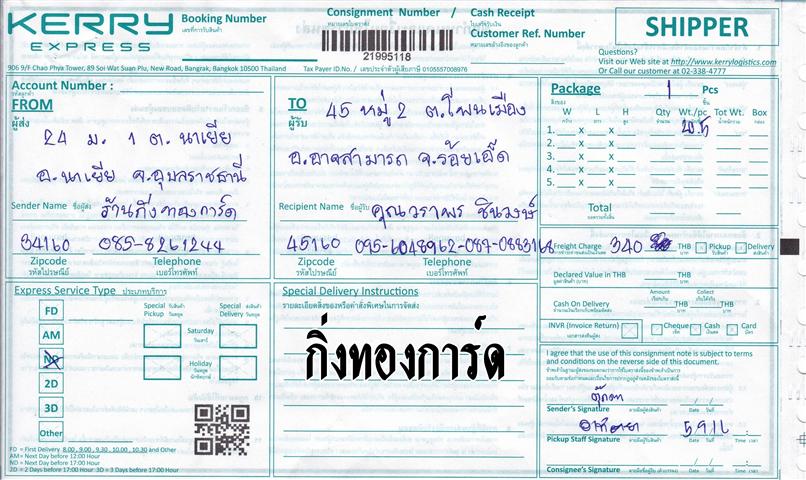 KERRY
EXPRESS
Booking Number
เลขที่การรับสินค้า
Consignment Number
หมายเลขใบตราส่ง
21995118
Cash Receipt
ใบเสร็จรับเงิน
Customer Ref. Number
หมายเลขอ้างอิงของลูกค้า
SHIPPER
Questions?
Visit our Web site at http://www.kerrylogistics.com
Or Call our customer at 02-338-4777
906 9/F Chao Phya Tower, 89 Soi Wat Suan Plu, New Road, Bangrak, Bangkok 10500 Thailand
Tax Payer ID.No. / เลขประจำตัวผู้เสียภาษี 0105557008976
Account Number :
FROM
ผู้ส่ง
24 ม. 1 ต. นาเยีย
อ. นาเยีย จ.อุบลราชธานี
Sender Name ชื่อผู้ส่ง ร้านกิ่งทองการ์ด
34160 085-8261244
Zipcode Telephone
รหัสไปรษณีย์ เบอร์โทรศัพท์
TO
ผู้รับ
45 หมู่ 2 ต.โพนเมือง
อ.อาจสามารถ จ.ร้อยเอ็ด
Recipient Name ชื่อผู้รับ คุณวราพร ชินวงษ์
45160 095-6048962-087-0883168
Zipcode Telephone
รหัสไปรษณีย์ เบอร์โทรศัพท์
Package 1 Pcs
สิ่งของ ชิ้น
W L H Qty Wt./pc Tot Wt. Box
กว้าง ยาว สูง จำนวน
1. X X
2. X X
3. X X
4. X X
5. X X
Total
Freight Charge 340 THB Pickup Delivery
Declared Value in THB THB
Amount Collect
Cash On Delivery THB THB
INVR (Invoice Return) Cheque Cash Card
Express Service Type ประเภทบริการ
Special Pickup
Special Delivery
FD
AM
ND
2D
3D
Other
Saturday
วันเสาร์
Holiday
วันหยุด
นักขัตฤกษ์
FD = First Delivery 8.00, 9.00, 9.30, 10.00, 10.30 and Other
AM = Next Day before 12:00 Hour
ND = Next Day before 17:00 Hour
2D = 2 Days before 17:00 Hour 3D = 3 Days before 17:00 Hour
Special Delivery Instructions
รายละเอียดสิ่งของหรือคำสั่งพิเศษในการจัดส่ง
กิ่งทองการ์ด
I agree that the use of this consignment note is subject to terms
and conditions on the reverse side of this document.
ตุ๊กตา
Sender's Signature ลายมือชื่อผู้ส่งสินค้า Date วันที่
Pickup Staff Signature Date วันที่ Time เวลา
Consignee's Signature Date วันที่ Time เวลา